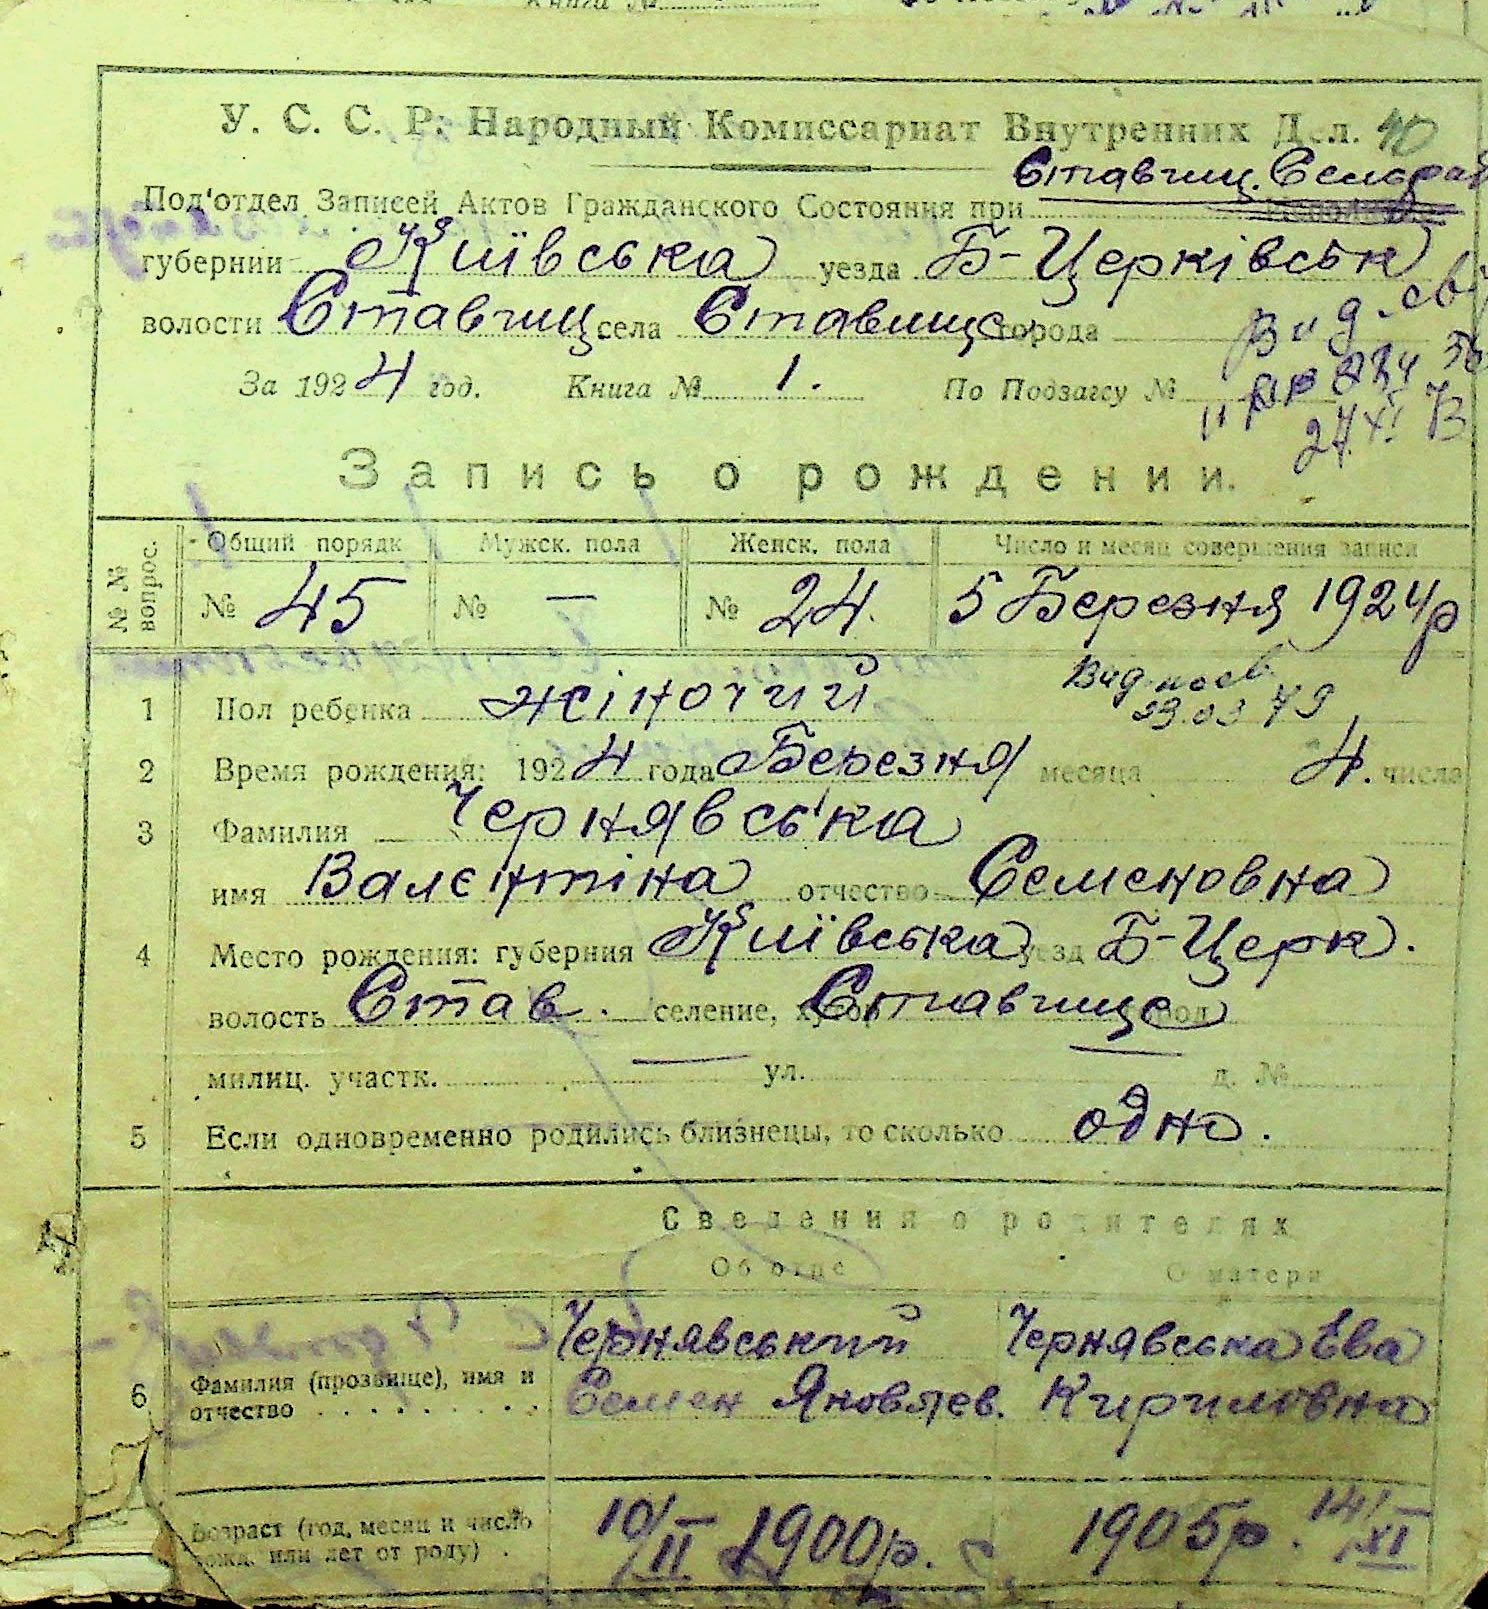 У. С. С. Р. Народный Комиссариат Внутренних Дел. 40
Ставищ. Сельрай
Под'отдел Записей Актов Гражданского Состояния при
губернии Київська уезда Б-Церківськ
волости Ставищ села Ставище города
Вид. св
За 1924 год. Книга № 1. По Подзагсу №
27.XI
Запись о рождении.
№ № вопрос. Общий порядк Мужск. пола Женск. пола Число и месяц совершения записи
№ 45 № — № 24. 5 Березня 1924р
1 Пол ребенка жіночий
Вид. посв.
2 Время рождения: 1924 года Березня месяца 4. числа
3 Фамилия Чернявська
имя Валєнтіна отчество Семеновна
4 Место рождения: губерния Київська уезд Б-Церк.
волость Став. селение, хутор Ставище город
милиц. участк. — ул. — д. №
5 Если одновременно родились близнецы, то сколько одно.
Сведения о родителях
Об отце О матери
6 Фамилия (прозвище), имя и отчество
Чернявський Чернявська Ева
Семен Яковлев. Кириловна
Возраст (год, месяц и число рожд. или лет от роду)
10/II 1900р. 1905р. 14/XI